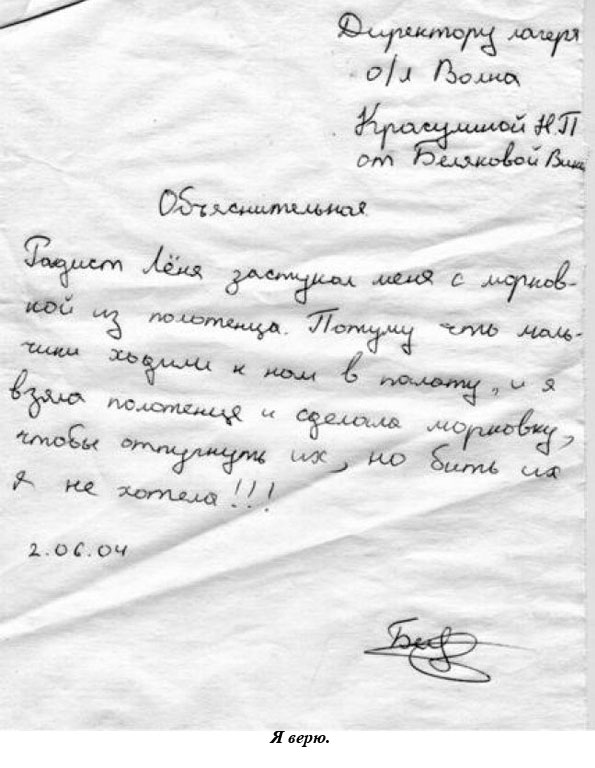 Директору лагеря
о/л Волна
Красулиной Н.П
от Беляковой Вики
Объяснительная
Радист Лёня застукал меня с морков-
кой из полотенца. Потуму что маль-
чики ходили к нам в палату, и я
взяла полотенце и сделала морковку,
чтобы отпугнуть их, но бить их
я не хотела!!!
2.06.04
Бел
Я верю.